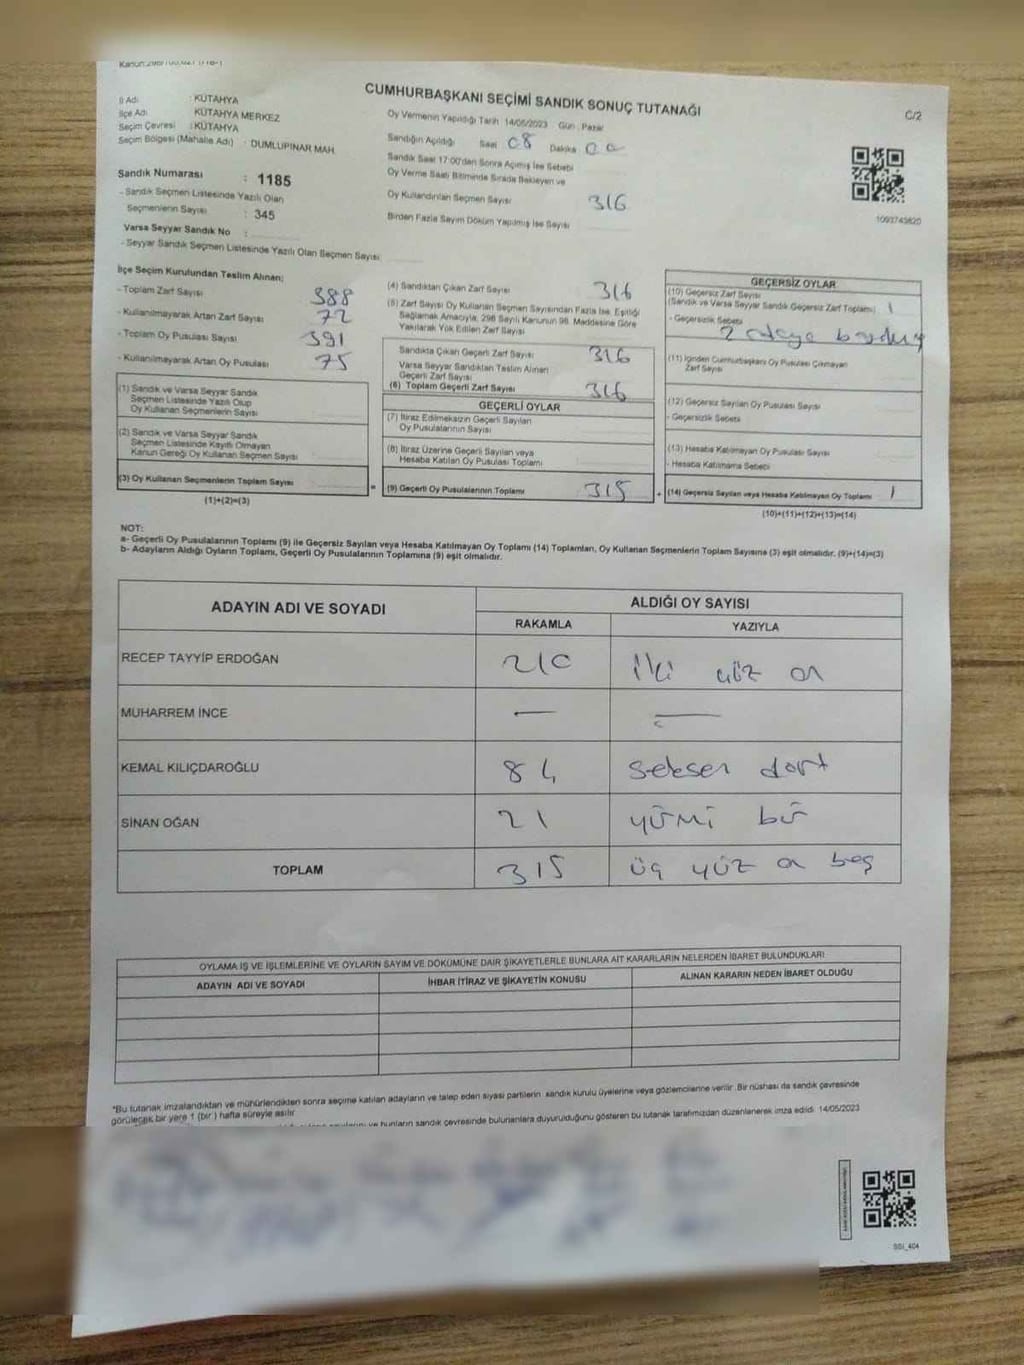 CUMHURBAŞKANI SEÇİMİ SANDIK SONUÇ TUTANAĞI
C/2
İl Adı : KÜTAHYA
İlçe Adı KÜTAHYA MERKEZ
Seçim Çevresi : KÜTAHYA
Seçim Bölgesi (Mahalle Adı) : DUMLUPINAR MAH.
Sandık Numarası : 1185
- Sandık Seçmen Listesinde Yazılı Olan
Seçmenlerin Sayısı : 345
Varsa Seyyar Sandık No :
- Seyyar Sandık Seçmen Listesinde Yazılı Olan Seçmen Sayısı
Oy Vermenin Yapıldığı Tarih 14/05/2023 Gün : Pazar
Sandığın Açıldığı Saat 08 Dakika 00
Sandık Saat 17:00'den Sonra Açılmış İse Sebebi
Oy Verme Saati Bitiminde Sırada Bekleyen ve
Oy Kullandırılan Seçmen Sayısı 316
Birden Fazla Sayım Döküm Yapılmış İse Sayısı
1093743820
İlçe Seçim Kurulundan Teslim Alınan;
- Toplam Zarf Sayısı 388
- Kullanılmayarak Artan Zarf Sayısı 72
- Toplam Oy Pusulası Sayısı 391
- Kullanılmayarak Artan Oy Pusulası 75
(1) Sandık ve Varsa Seyyar Sandık
Seçmen Listesinde Yazılı Olup
Oy Kullanan Seçmenlerin Sayısı
(2) Sandık ve Varsa Seyyar Sandık
Seçmen Listesinde Kayıtlı Olmayan
Kanun Gereği Oy Kullanan Seçmen Sayısı
(3) Oy Kullanan Seçmenlerin Toplam Sayısı
(1)+(2)=(3)
(4) Sandıktan Çıkan Zarf Sayısı 316
(5) Zarf Sayısı Oy Kullanan Seçmen Sayısından Fazla İse, Eşitliği
Sağlamak Amacıyla, 298 Sayılı Kanunun 98. Maddesine Göre
Yakılarak Yok Edilen Zarf Sayısı
Sandıkta Çıkan Geçerli Zarf Sayısı 316
Varsa Seyyar Sandıktan Teslim Alınan
Geçerli Zarf Sayısı
(6) Toplam Geçerli Zarf Sayısı 316
GEÇERLİ OYLAR
(7) İtiraz Edilmeksizin Geçerli Sayılan
Oy Pusulalarının Sayısı
(8) İtiraz Üzerine Geçerli Sayılan veya
Hesaba Katılan Oy Pusulası Toplamı
= (9) Geçerli Oy Pusulalarının Toplamı 315
GEÇERSİZ OYLAR
(10) Geçersiz Zarf Sayısı
(Sandık ve Varsa Seyyar Sandık Geçersiz Zarf Toplamı) 1
- Geçersizlik Sebebi
2 adaya
(11) İçinden Cumhurbaşkanı Oy Pusulası Çıkmayan
Zarf Sayısı
(12) Geçersiz Sayılan Oy Pusulası Sayısı
- Geçersizlik Sebebi
(13) Hesaba Katılmayan Oy Pusulası Sayısı
- Hesaba Katılmama Sebebi
+ (14) Geçersiz Sayılan veya Hesaba Katılmayan Oy Toplamı 1
(10)+(11)+(12)+(13)=(14)
NOT:
a- Geçerli Oy Pusulalarının Toplamı (9) ile Geçersiz Sayılan veya Hesaba Katılmayan Oy Toplamı (14) Toplamları, Oy Kullanan Seçmenlerin Toplam Sayısına (3) eşit olmalıdır. (9)+(14)=(3)
b- Adayların Aldığı Oyların Toplamı, Geçerli Oy Pusulalarının Toplamına (9) eşit olmalıdır.
ADAYIN ADI VE SOYADI ALDIĞI OY SAYISI
RAKAMLA YAZIYLA
RECEP TAYYİP ERDOĞAN 210 iki yüz on
MUHARREM İNCE — —
KEMAL KILIÇDAROĞLU 84 seksen dört
SİNAN OĞAN 21 yirmi bir
TOPLAM 315 üç yüz on beş
OYLAMA İŞ VE İŞLEMLERİNE VE OYLARIN SAYIM VE DÖKÜMÜNE DAİR ŞİKAYETLERLE BUNLARA AİT KARARLARIN NELERDEN İBARET BULUNDUKLARI
ADAYIN ADI VE SOYADI İHBAR İTİRAZ VE ŞİKAYETİN KONUSU ALINAN KARARIN NEDEN İBARET OLDUĞU
*Bu tutanak imzalandıktan ve mühürlendikten sonra seçime katılan adayların ve talep eden siyasi partilerin sandık kurulu üyelerine veya gözlemcilerine verilir. Bir nüshası da sandık çevresinde
görülecek bir yere 1 (bir) hafta süreyle asılır
ve bunların sandık çevresinde bulunanlara duyurulduğunu gösteren bu tutanak tarafımızdan düzenlenerek imza edildi. 14/05/2023
SSI_404